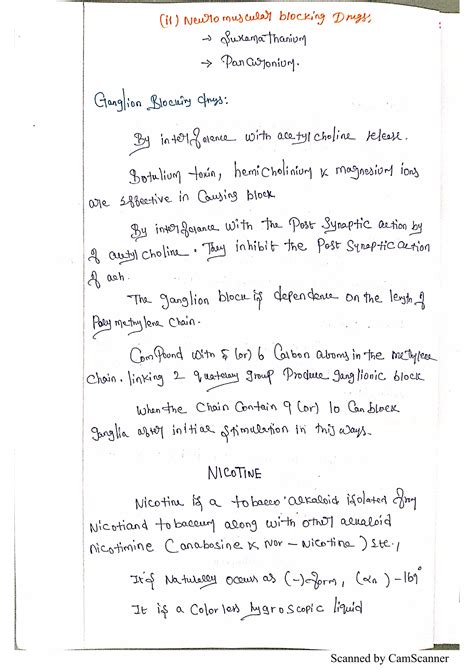 (ii) Neuro muscular blocking Drugs:
→ Suxamathanium
→ Pancuronium.
Ganglion Blocking drugs:
By interference with acetyl choline release.
Botulium toxin, hemicholinium & magnesium ions
are effective in Causing block
By interferance with the Post Synaptic action by
of acetyl choline. They inhibit the Post Synaptic action
of ach.
The ganglion block is dependence on the length of
Poly methylene Chain.
Compound with 5 (or) 6 Carbon atoms in the methylene
Chain. linking 2 quaternary group Produce ganglionic block
When the Chain Contain 9 (or) 10 Can block
ganglia after initial stimulation in this ways.
NICOTINE
Nicotine is a tobacco alkaloid isolated from
Nicotiand tobaccum along with other alkaloid
nicotimine Canabasine & Nor - Nicotine) Etc.,
It is Naturally occurs as (-) form, -169°
It is a Colorless hygroscopic liquid
Scanned by CamScanner